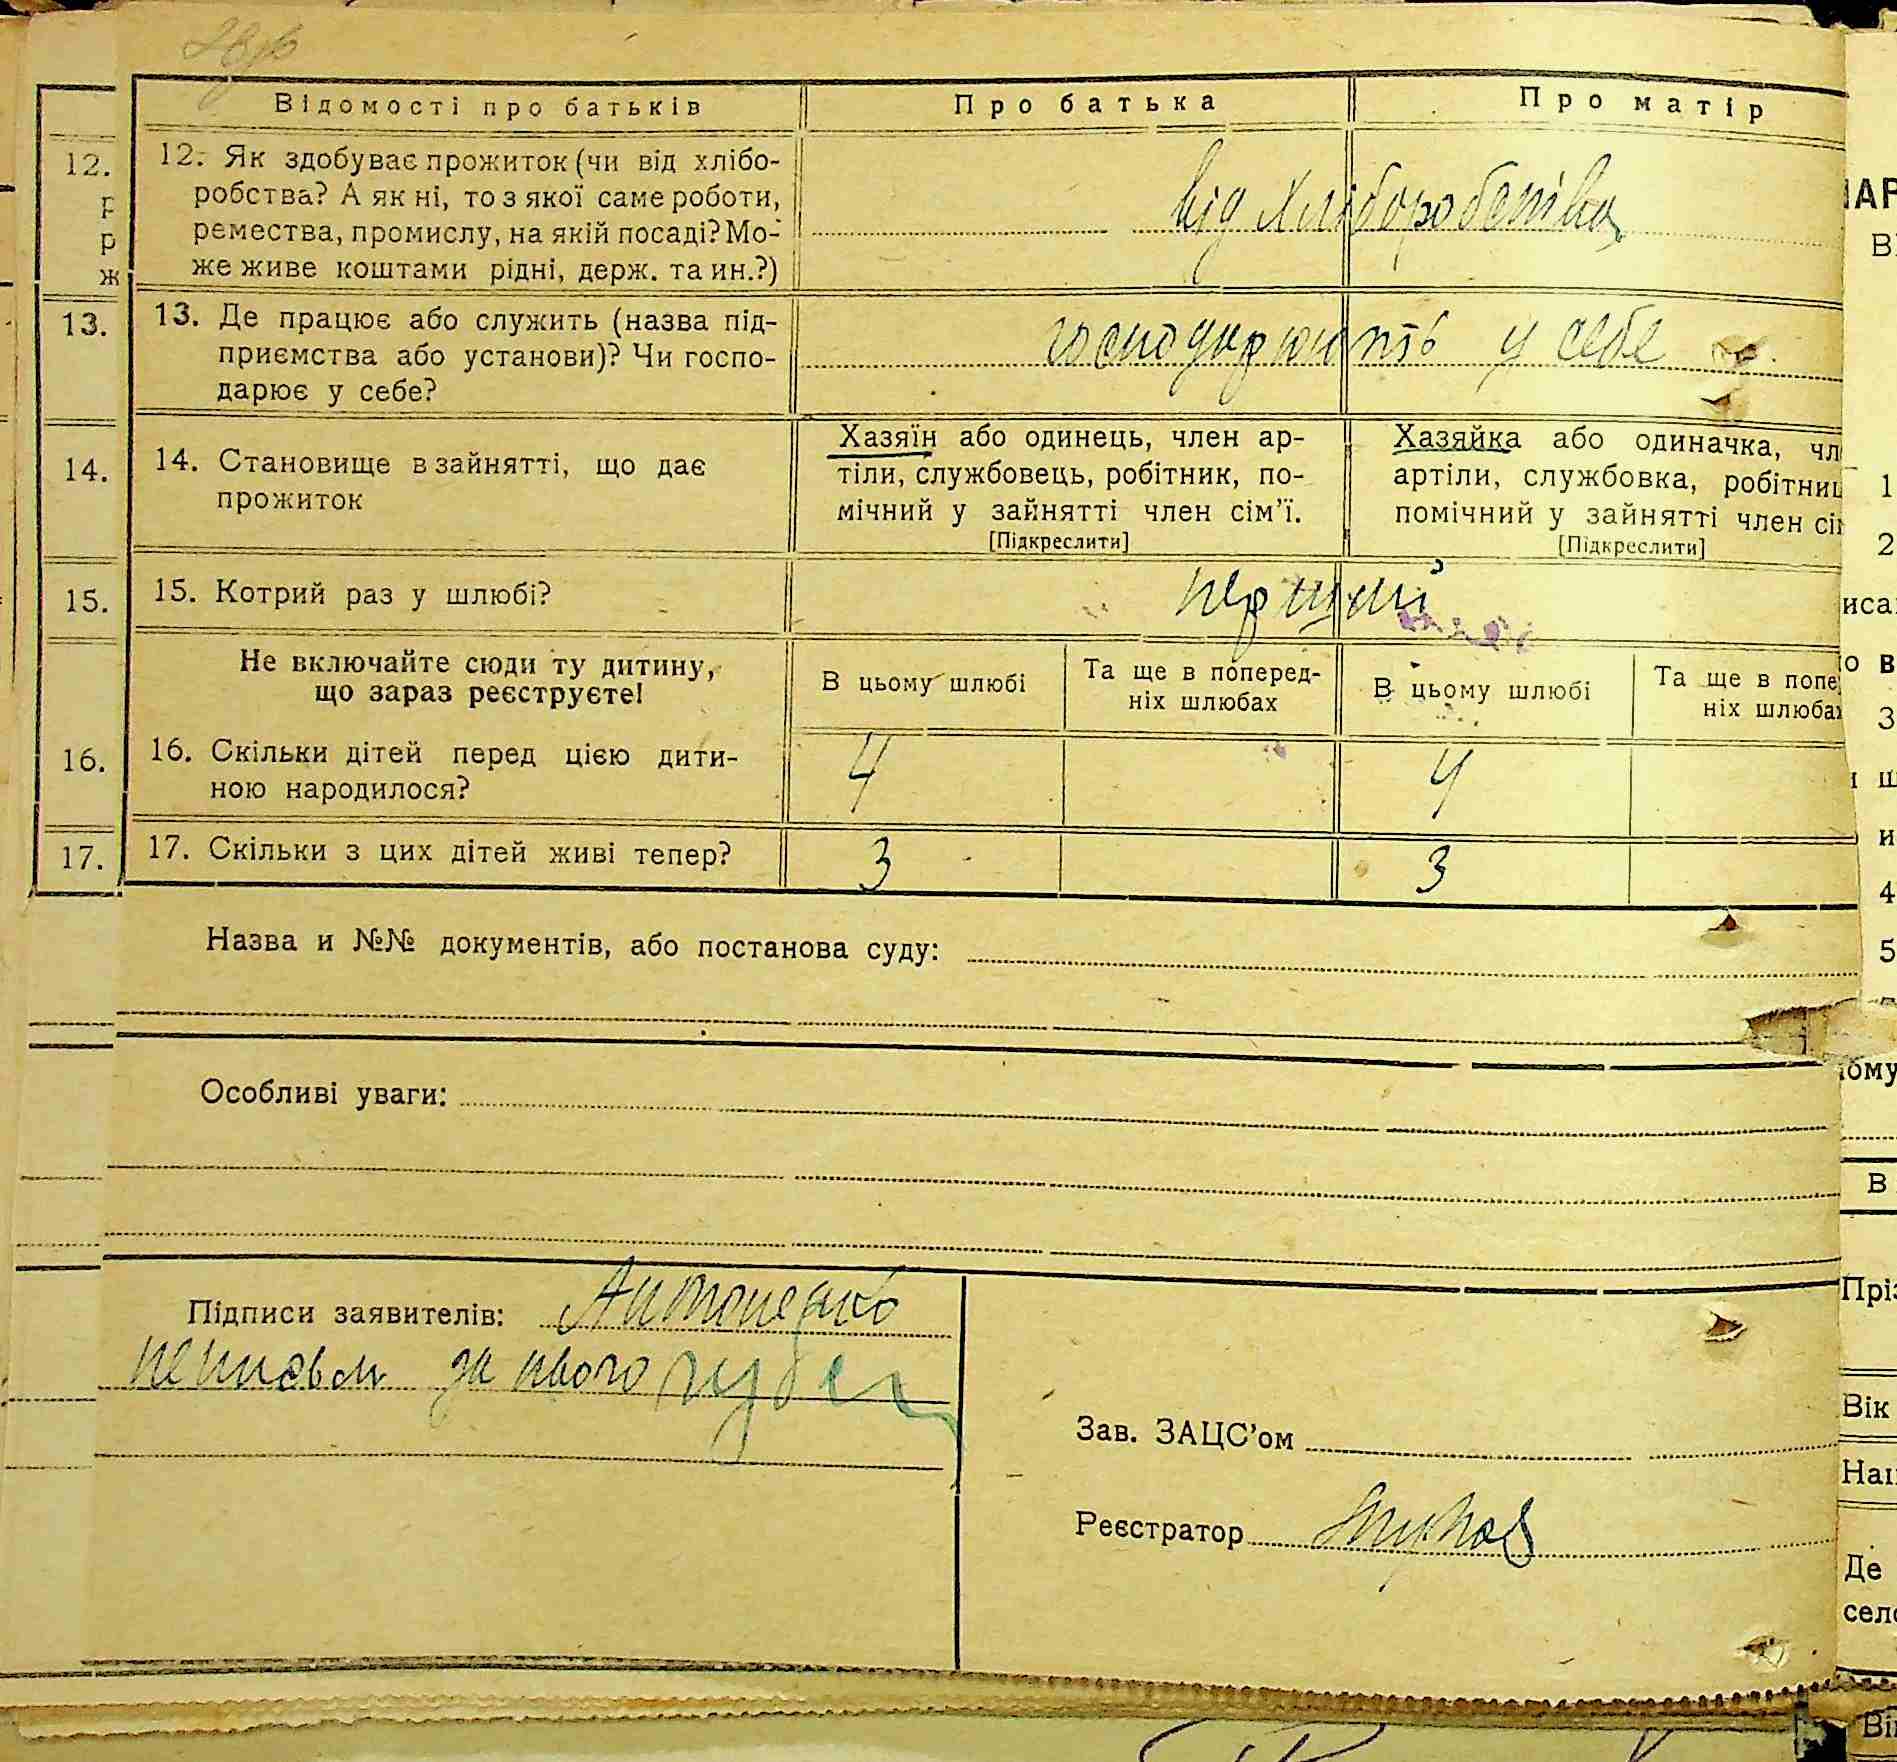 Відомості про батьків
Про батька
Про матір
12. Як здобуває прожиток (чи від хлібо-
робства? А як ні, то з якої саме роботи,
ремества, промислу, на якій посаді? Мо-
же живе коштами рідні, держ. та ин.?)
від хліборобства
13. Де працює або служить (назва під-
приємства або установи)? Чи госпо-
дарює у себе?
господарюють у себе
14. Становище в зайнятті, що дає
прожиток
Хазяїн або одинець, член ар-
тіли, службовець, робітник, по-
мічний у зайнятті член сім’ї.
[Підкреслити]
Хазяйка або одиначка, чл
артіли, службовка, робітниц
помічний у зайнятті член сі
[Підкреслити]
15. Котрий раз у шлюбі?
перший
Не включайте сюди ту дитину,
що зараз реєструєте!
В цьому шлюбі
Та ще в поперед-
ніх шлюбах
В цьому шлюбі
Та ще в попе
ніх шлюбах
16. Скільки дітей перед цією дити-
ною народилося?
4
4
17. Скільки з цих дітей живі тепер?
3
3
Назва и №№ документів, або постанова суду:
Особливі уваги:
Підписи заявителів: Антоненко
неписьм за нього
Зав. ЗАЦС’ом
Реєстратор
12.
р
р
ж
13.
14.
15.
16.
17.
НАР
1
2
иса
о в
3
4
5
ому
В
Прі
Вік
Нац
Де
село
Ві